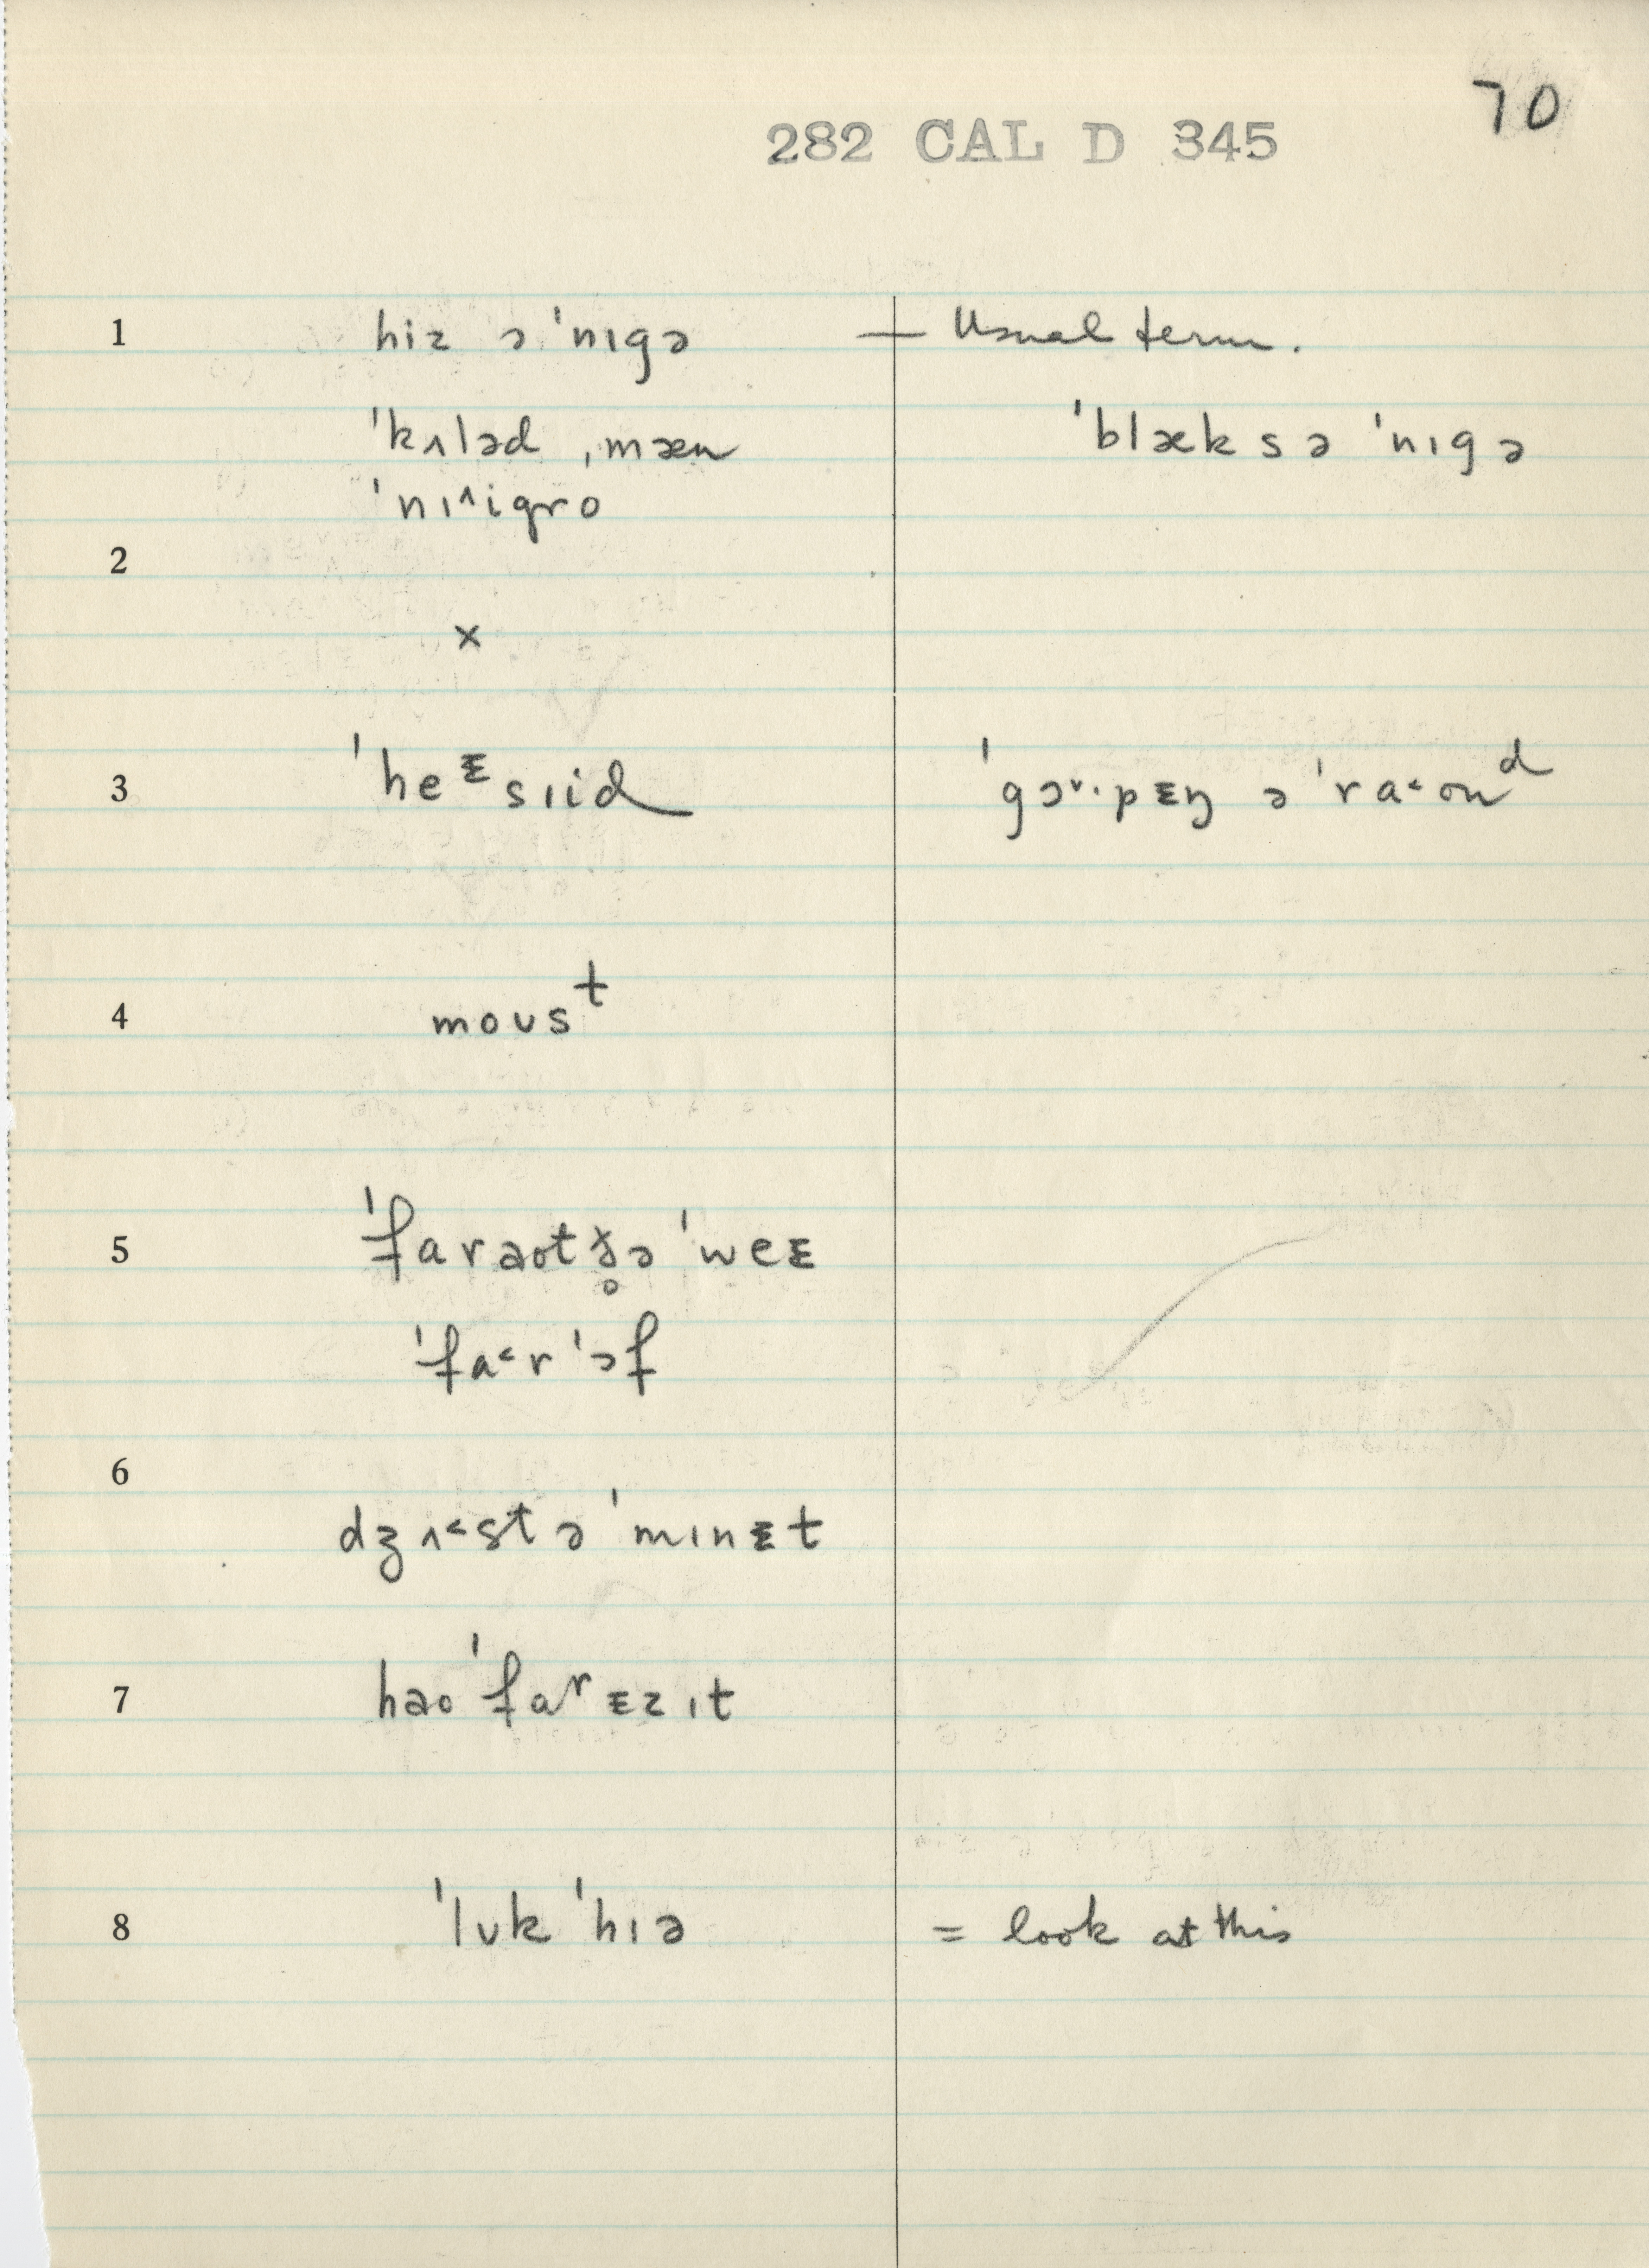 70
282 CAL D 345
1 hiz ə ˈnɪgə — Usual term.
ˈkʌləd ˌmæn ˈblæk s ə ˈnɪgə
ˈnɪ˄igro
2
×
3 ˈheᵻsɪid ˈgɔ˅·pᵻŋ ə ˈra˂ʊnᵈ
4 moʊsᵗ
5 ˈfarəʊtð̥ə ˈweᵻ
ˈfa˂r ˈɔf
6
dʒʌ˂st ə ˈmɪnᵻt
7 haʊ ˈfaʳ ᵻz ɪt
8 ˈlʊk ˈhɪə = look at this